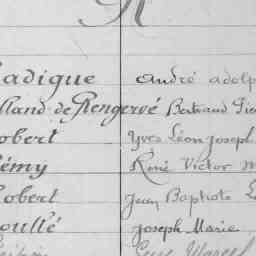 R
adigue André adolp
lland de Rengervé Bertrand
obert Yves Léon Joseph
émy René Victor
obert Jean Baptiste
oullé Joseph Marie
Marcel